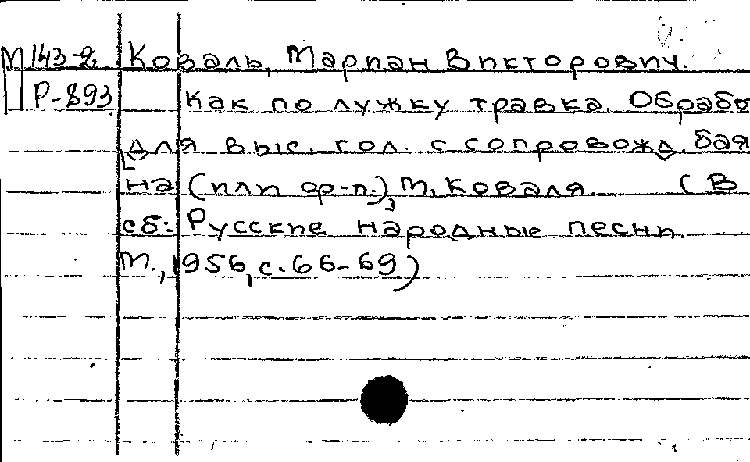 М 143-2 Коваль, Мариан Викторович.
Р-893 Как по лужку травка. Обрабо
для выс. гол. с сопровожд. бая
на (или ф-п.) М. Коваля. (В
сб: Русские народные песни.
М., 1956, с. 66-69)